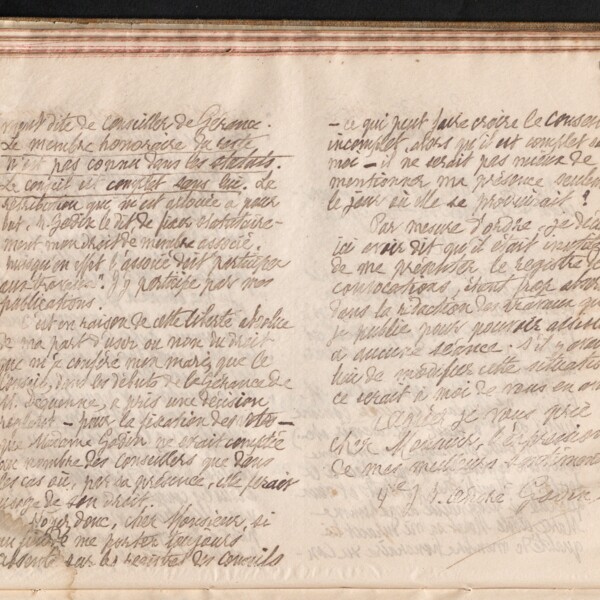 dite de conseiller de Gérance.
Le membre honoraire du reste
n'est pas connu dans les statuts.
Le conseil est complet sans lui. La
rétribution qui m'est allouée a pour
but, M. Godin le dit, de fixer statutaire-
ment mon droit de membre associé.
Puisqu'en effet l'associé doit participer
aux travaux. J'y participe par mes
publications.
C'est en raison de cette liberté absolue
de ma part d'user ou non du droit
que m'a conféré mon mari, que le
Conseil, dans les débuts de la Gérance de
M. Dequenne, a pris une décision
portant - pour la fixation des
que Madame Godin ne serait comptée
au nombre des conseillers que dans
les cas où, par sa présence, elle ferait
usage de son droit.
Voyez donc, cher Monsieur, si
au lieu de me porter toujours
absente sur le registre des Conseils
- ce qui peut faire croire le conseil
incomplet, alors qu'il est complet sans
moi - il ne serait pas mieux de
mentionner ma présence seulement
le jour où elle se produirait ?
Par mesure d'ordre, je
ici avoir dit qu'il était inutile
de me présenter le registre de
convocations, étant trop
dans la rédaction des travaux que
je publie pour pouvoir assister
à aucune séance. S'il y avait
lieu de modifier cette situation
ce serait à moi de vous en
Agréez, je vous prie
cher Monsieur, l'expression
de mes meilleurs sentiments
Vve J. B. André Godin